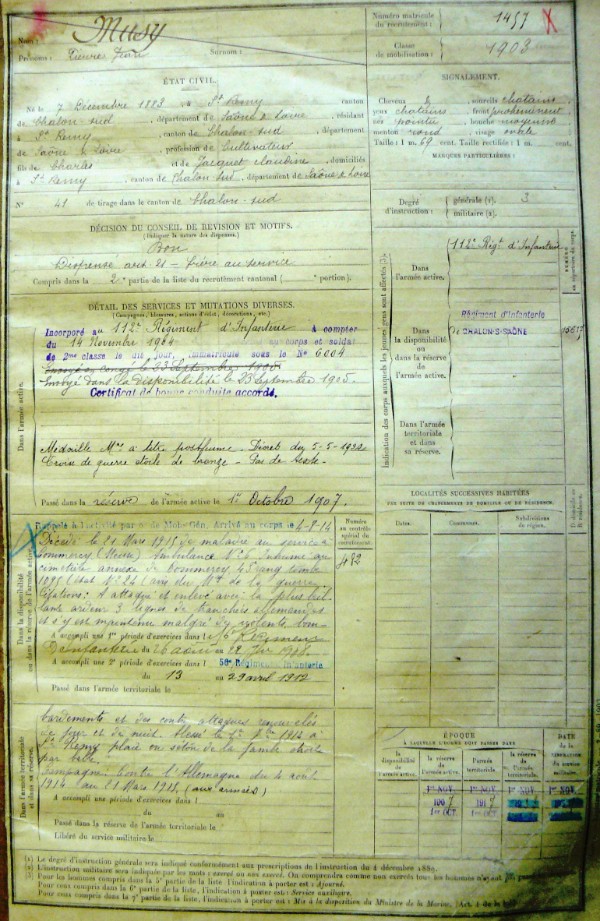 Nom : Musy
Prénoms : Pierre Jean Surnom :
Numéro matricule du recrutement : 1457
Classe de mobilisation : 1903
ÉTAT CIVIL.
Né le 7 Décembre 1883 à St Remy canton
de Chalon sud, département de Saône & Loire, résidant
à St Remy, canton de Chalon-Sud, département
de Saône & Loire, profession de Cultivateur,
fils de Charles et de Jacquet Claudine, domiciliés
à St Remy, canton de Chalon-Sud, département de Saône & Loire
N° 41 de tirage dans le canton de Chalon-sud
SIGNALEMENT.
Cheveux & sourcils chatains,
yeux chatains, front proéminent
nez pointu, bouche moyenne
menton rond, visage ovale
Taille : 1 m. 69 cent. Taille rectifiée : 1 m. cent.
MARQUES PARTICULIÈRES :
Degré d'instruction : générale (1). 3
militaire (2).
DÉCISION DU CONSEIL DE REVISION ET MOTIFS.
(Indiquer la nature des dispenses.)
Bon
Dispensé art. 21 – frère au service
Compris dans la 2e partie de la liste du recrutement cantonal ( e portion).
DÉTAIL DES SERVICES ET MUTATIONS DIVERSES.
(Campagnes, blessures, actions d'éclat, décorations, etc.)
Dans l'armée active.
Incorporé au 112e Régiment d'Infanterie À compter
du 14 Novembre 1904 au corps et soldat
de 2me classe le dit jour, immatriculé sous le N° 6004
Envoyé en congé le 23 Septembre 1905
Envoyé dans la disponibilité le 23 Septembre 1905.
Certificat de bonne conduite accordé.
Médaille Mre à titre posthume. Décret du 5-5-1922
Croix de guerre étoile de bronze –
Passé dans la réserve de l'armée active le 1er Octobre 1907.
Indication des corps auxquels les jeunes gens sont affectés
Dans l'armée active.
112e Régt d'Infanterie
Dans la disponibilité ou dans la réserve de l'armée active.
Régiment d'Infanterie
de CHALON-S-SAÔNE
Dans l'armée territoriale et dans sa réserve.
LOCALITÉS SUCCESSIVES HABITÉES
PAR SUITE DE CHANGEMENTS DE DOMICILE OU DE RÉSIDENCE.
Dates. Communes. Subdivisions de région.
Dans la disponibilité ou dans la réserve de l'armée active.
Numéro au contrôle spécial du recrutement.
482
Rappelé à l'activité par de Mobon Gén. Arrivé au corps le 4-8-14
Décédé le 21 Mars 1915 de maladie au service à
Commercy (Meuse) Ambulance N° 5. Inhumé au
cimetière annexe de Commercy 45 rang tombe
1095 (état N° 24) avis du Mre de la guerre.
Citations : A attaqué et enlevé avec la plus bril-
lante ardeur 3 lignes de tranchées allemandes
et s'y est maintenu malgré de violents bom-
A accompli une 1re période d'exercices dans le 56e Régiment
D'infanterie du 26 août au 22 7bre 1908.
A accompli une 2e période d'exercices dans l 56e Régiment Infanterie
du 13 au 29 avril 1912
Passé dans l'armée territoriale le
Dans l'armée territoriale et dans sa réserve.
bardements et des contre attaques renouvelés
de jour et de nuit. Blessé le 1914 à
plaie en séton de la jambe droite
par balle.
Campagne : Contre l'Allemagne du 4 août
1914 au 21 Mars 1915 (aux armées)
A accompli une période d'exercices dans l
du au
Passé dans la réserve de l'armée territoriale le
Libéré du service militaire le
ÉPOQUE
À LAQUELLE L'HOMME DOIT PASSER DANS
la disponibilité de l'armée active. la réserve de l'armée active. l'armée territoriale. la réserve de l'armée territoriale.
DATE de la LIBÉRATION du service militaire.
1er NOV. 1er NOV. 1er NOV. 1er NOV.
1907 191
1er OCT. 1er OCT.
(1) Le degré d'instruction générale sera indiqué conformément aux prescriptions de l'instruction du 4 décembre 1889.
(2) L'instruction militaire sera indiquée par les mots : exercé ou non exercé. On comprendra comme non exercés tous les hommes n'ayant
(3) Pour les hommes compris dans la 5e partie de la liste l'indication à porter est : Ajourné.
Pour ceux compris dans la 6e partie de la liste, l'indication à porter est : Service auxiliaire.
Pour ceux compris dans la 7e partie de la liste, l'indication à porter est : Mis à la disposition du Ministre de la Marine.